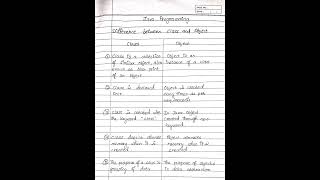 Java Programming
Difference between Class and Object
Class
Object
Class is a collection
of similar object, also
known as blue print
of an object
Object is an
instance of a class
Class is declared
once
Object is created
many times as per
requirement
Class is created when
the keyword "class"
In Java Object
created through new
keyword
Class doesn't allocate
memory when it is
created
Object allocates
memory when it is
created
The purpose of a class is
The purpose of object is
data abstraction